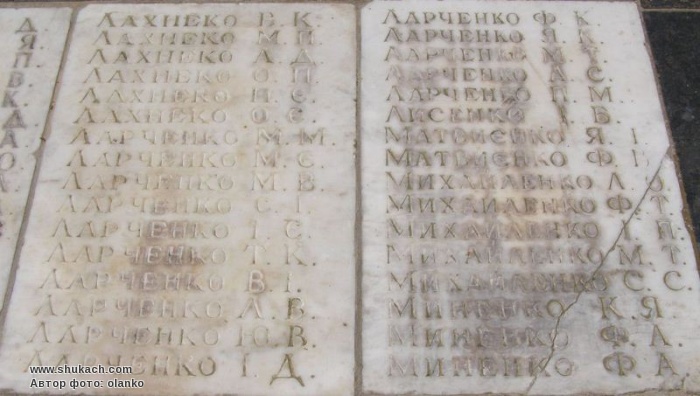 Д.
Я.
П.
В
К
Д
А
О
ЛАХНЕКО В. К.
ЛАХНЕКО М. П.
ЛАХНЕКО А. Д.
ЛАХНЕКО О. П
ЛАХНЕКО П. С.
ЛАХНЕКО О. С.
ЛАРЧЕНКО М. М.
ЛАРЧЕНКО М. С.
ЛАРЧЕНКО М. В.
ЛАРЧЕНКО С. І.
ЛАРЧЕНКО І. С.
ЛАРЧЕНКО Т. К.
ЛАРЧЕНКО В. І.
ЛАРЧЕНКО А. В.
ЛАРЧЕНКО Ю. В.
ЛАРЧЕНКО І. Д.
ЛАРЧЕНКО Ф. К.
ЛАРЧЕНКО Я. К.
ЛАРЧЕНКО М. Т.
ЛАРЧЕНКО А. С.
ЛАРЧЕНКО П. М.
ЛИСЕНКО В.
МАТВІЄНКО Я. І.
МАТВІЄНКО Ф.
МИХАЙЛЕНКО Л.
МИХАЙЛЕНКО Ф. Т.
МИХАЙЛЕНКО І. П.
МИХАЙЛЕНКО М. Т.
МИХАЙЛЕНКО С. С.
МИНЕНКО К. Я.
МИНЕНКО Ф. Л.
МИНЕНКО Ф. А.
www.shukach.com
Автор фото: olanko